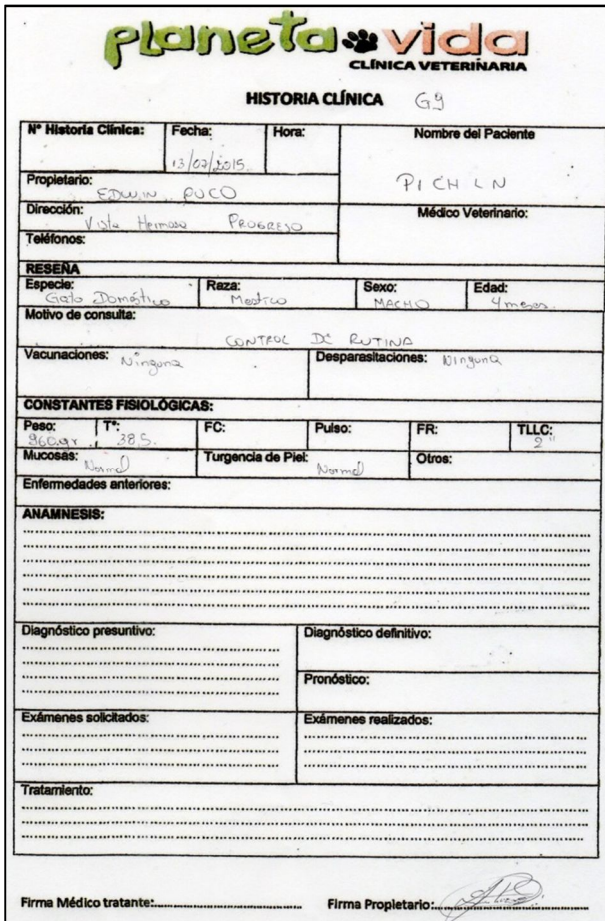 planeta vida
CLÍNICA VETERINARIA
HISTORIA CLÍNICA G9
Nº Historia Clínica: Fecha: Hora: Nombre del Paciente
13/07/2015.
PICHIN
Propietario:
EDWIN PUCO
Dirección: Médico Veterinario:
Vista Hermosa PROGRESO
Teléfonos:
RESEÑA
Especie: Raza: Sexo: Edad:
Gato Doméstico Mestico MACHO 4 meses.
Motivo de consulta:
CONTROL DE RUTINA
Vacunaciones: Ninguna Desparasitaciones: Ninguna
CONSTANTES FISIOLÓGICAS:
Peso: Tº: FC: Pulso: FR: TLLC:
960.gr 38,5. 2"
Mucosas: Normal Turgencia de Piel: Normal Otros:
Enfermedades anteriores:
ANAMNESIS:
Diagnóstico presuntivo: Diagnóstico definitivo:
Pronóstico:
Exámenes solicitados: Exámenes realizados:
Tratamiento:
Firma Médico tratante: Firma Propietario: